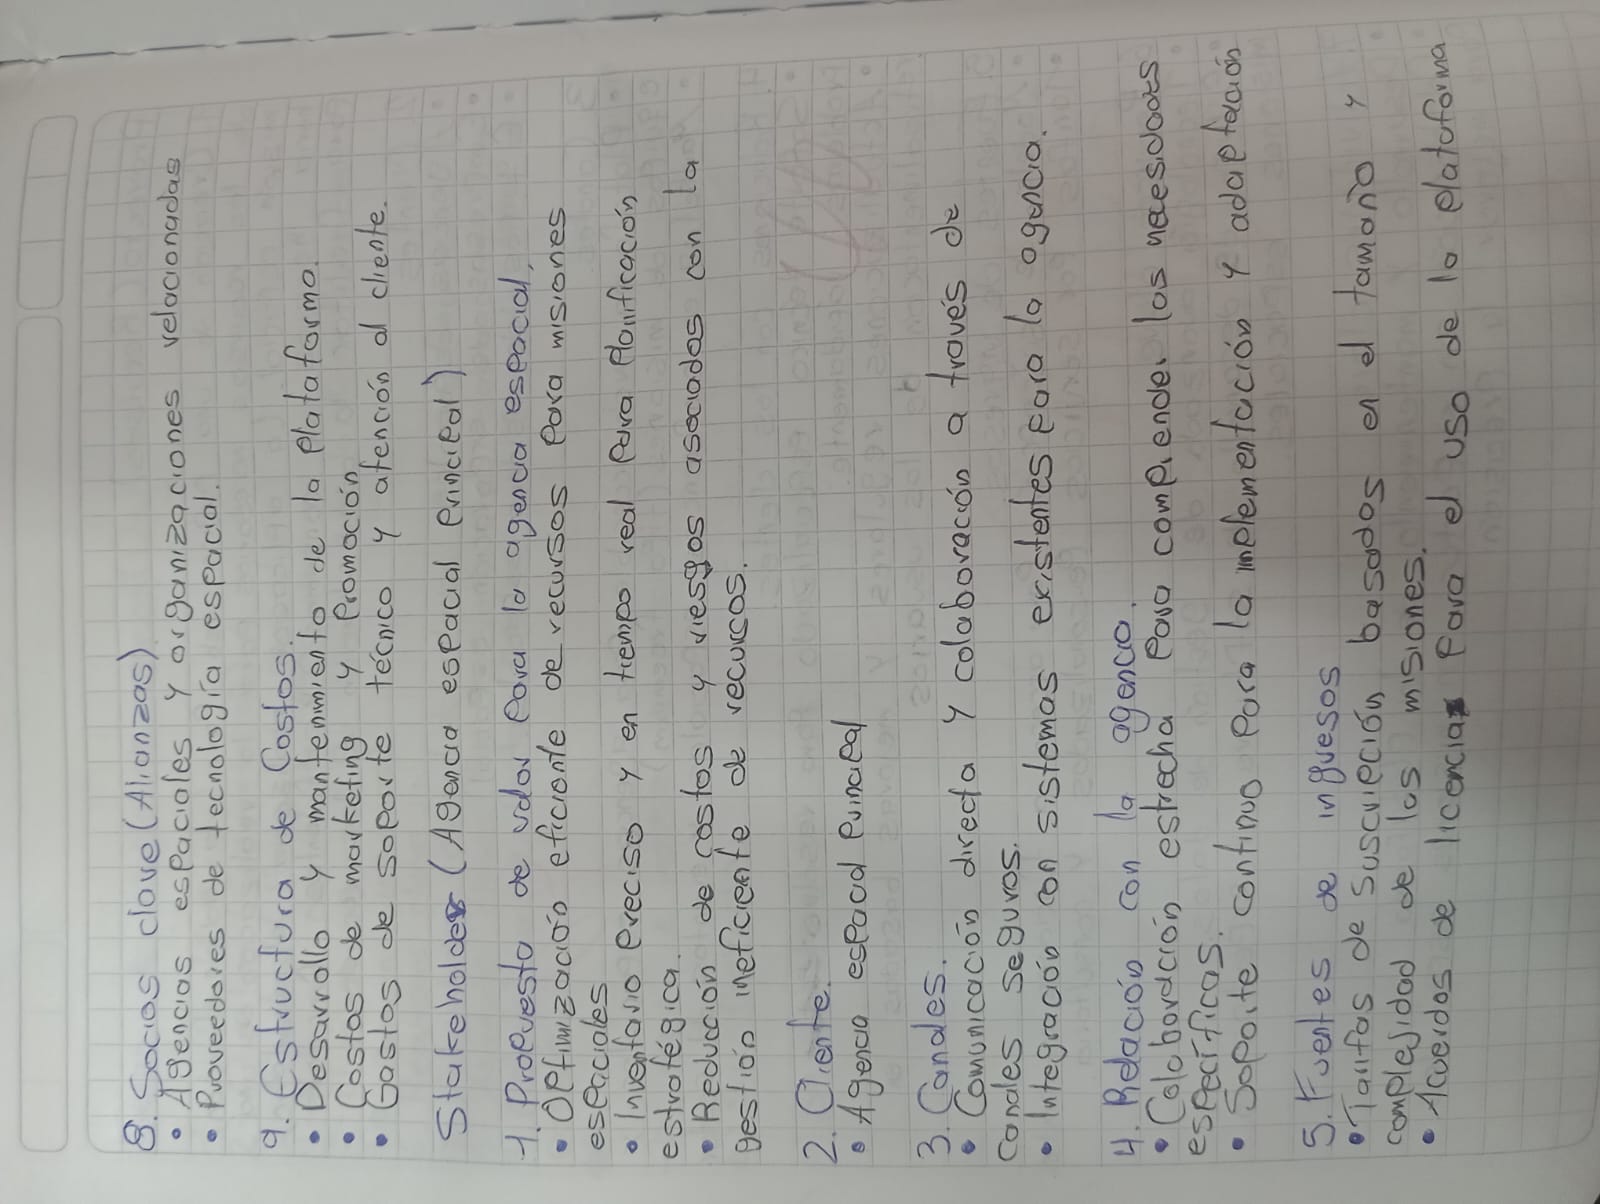 8. Socios clave (Alianzas)
• Agencias espaciales y organizaciones relacionadas
• Proveedores de tecnología espacial.
9. Estructura de Costos.
• Desarrollo y mantenimiento de la plataforma.
• Costos de marketing y promoción
• Gastos de soporte técnico y atención al cliente.
Stakeholder (Agencia espacial principal)
1. Propuesta de valor para la agencia espacial,
• Optimización eficiente de recursos para misiones
espaciales
• Inventario preciso y en tiempo real para planificación
estratégica.
• Reducción de costos y riesgos asociados con la
gestión ineficiente de recursos.
2. Cliente.
• Agencia espacial principal
3. Canales.
• Comunicación directa y colaboración a través de
canales seguros.
• Integración con sistemas existentes para la agencia.
4. Relación con la agencia.
• Colaboración estrecha para comprender las necesidades
específicas.
• Soporte continuo para la implementación y adaptación
5. Fuentes de ingresos
• Tarifas de suscripción basados en el tamaño y
complejidad de las misiones.
• Acuerdos de licencia para el uso de la plataforma